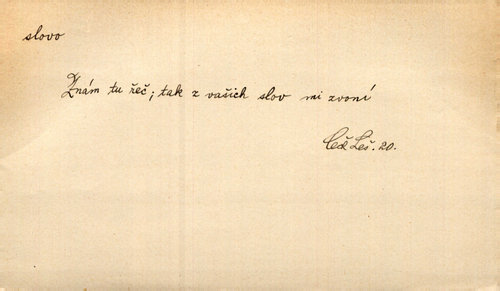 slovo
Znám tu řeč; tak z vašich slov mi zvoní
Leš. 20.